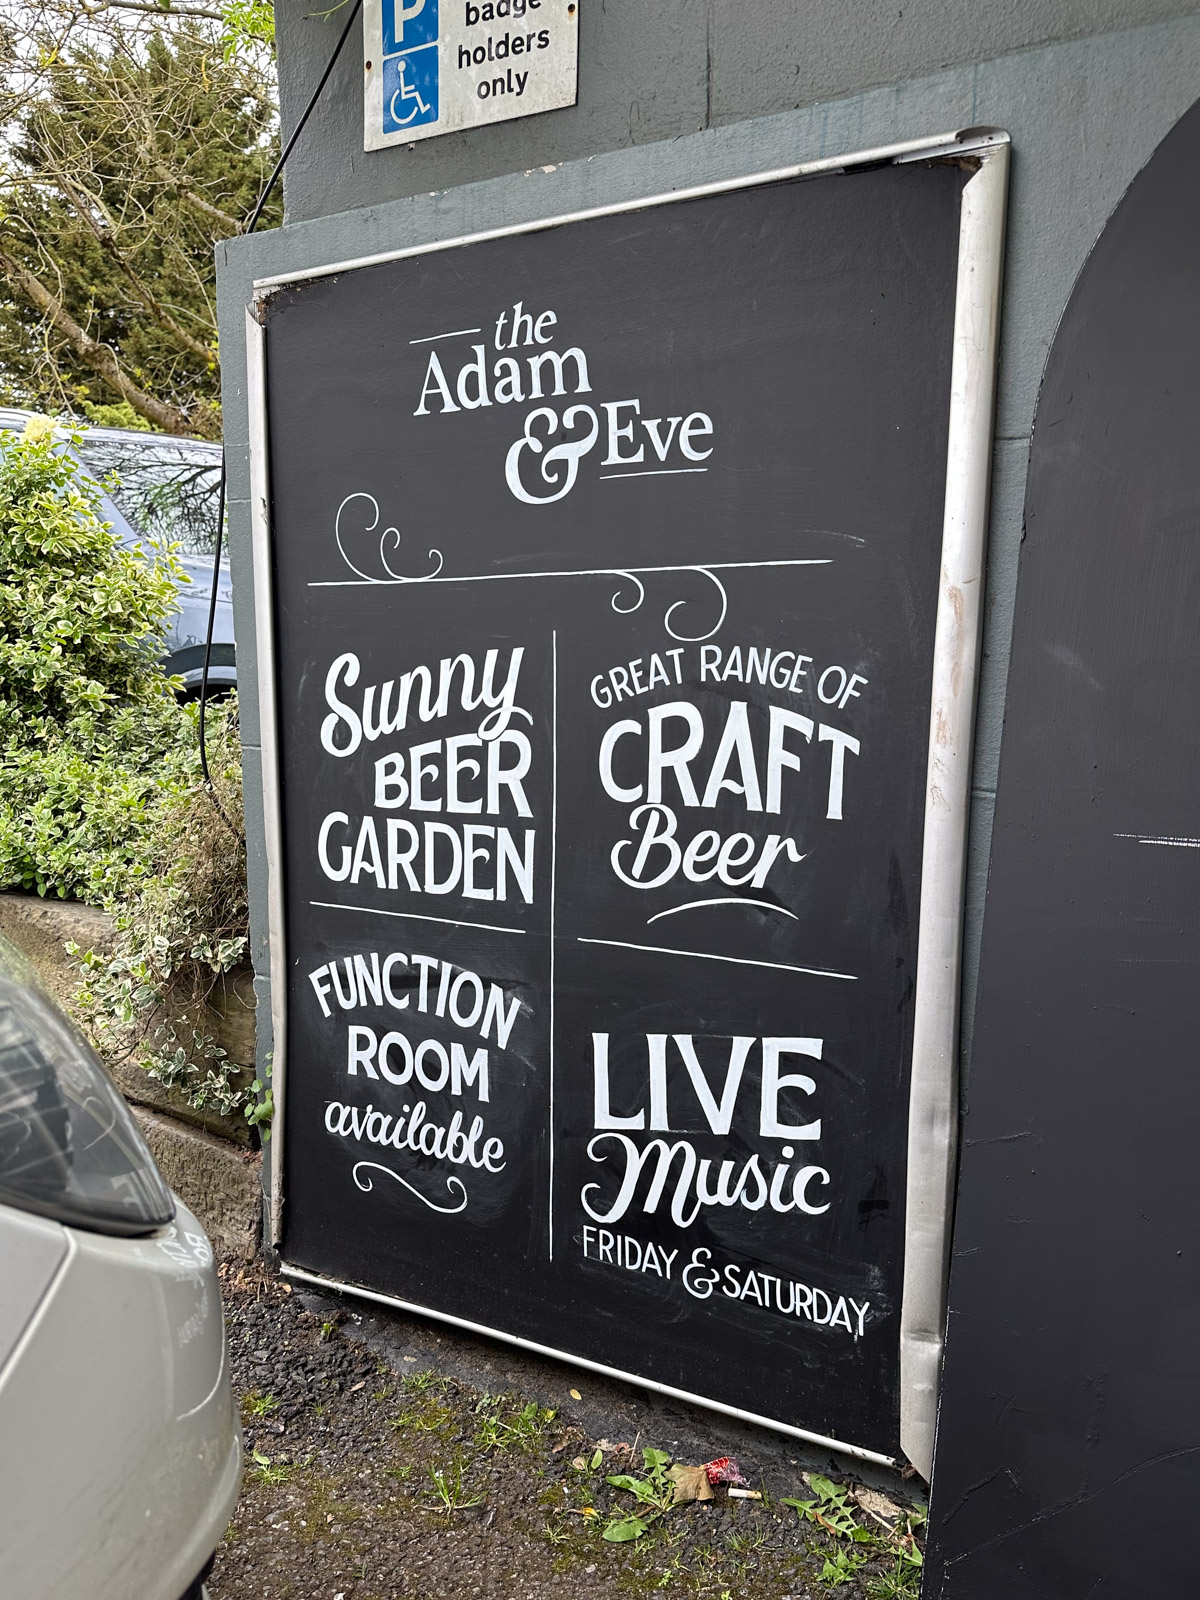 P
badge
holders
only
the
Adam
& Eve
Sunny
BEER
GARDEN
GREAT RANGE OF
CRAFT
Beer
FUNCTION
ROOM
available
LIVE
Music
FRIDAY & SATURDAY